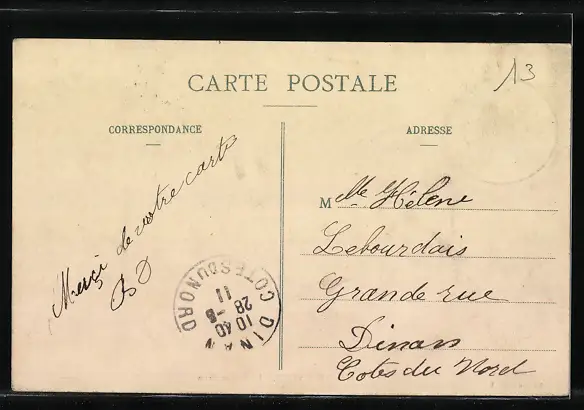 13
CARTE POSTALE
CORRESPONDANCE
Merci de votre carte
BD
ADRESSE
M Mlle Hélène
Lebourdais
Grande rue
Dinan
Cotes du Nord
DINAN
10 40
28 -8
11
COTES DU NORD